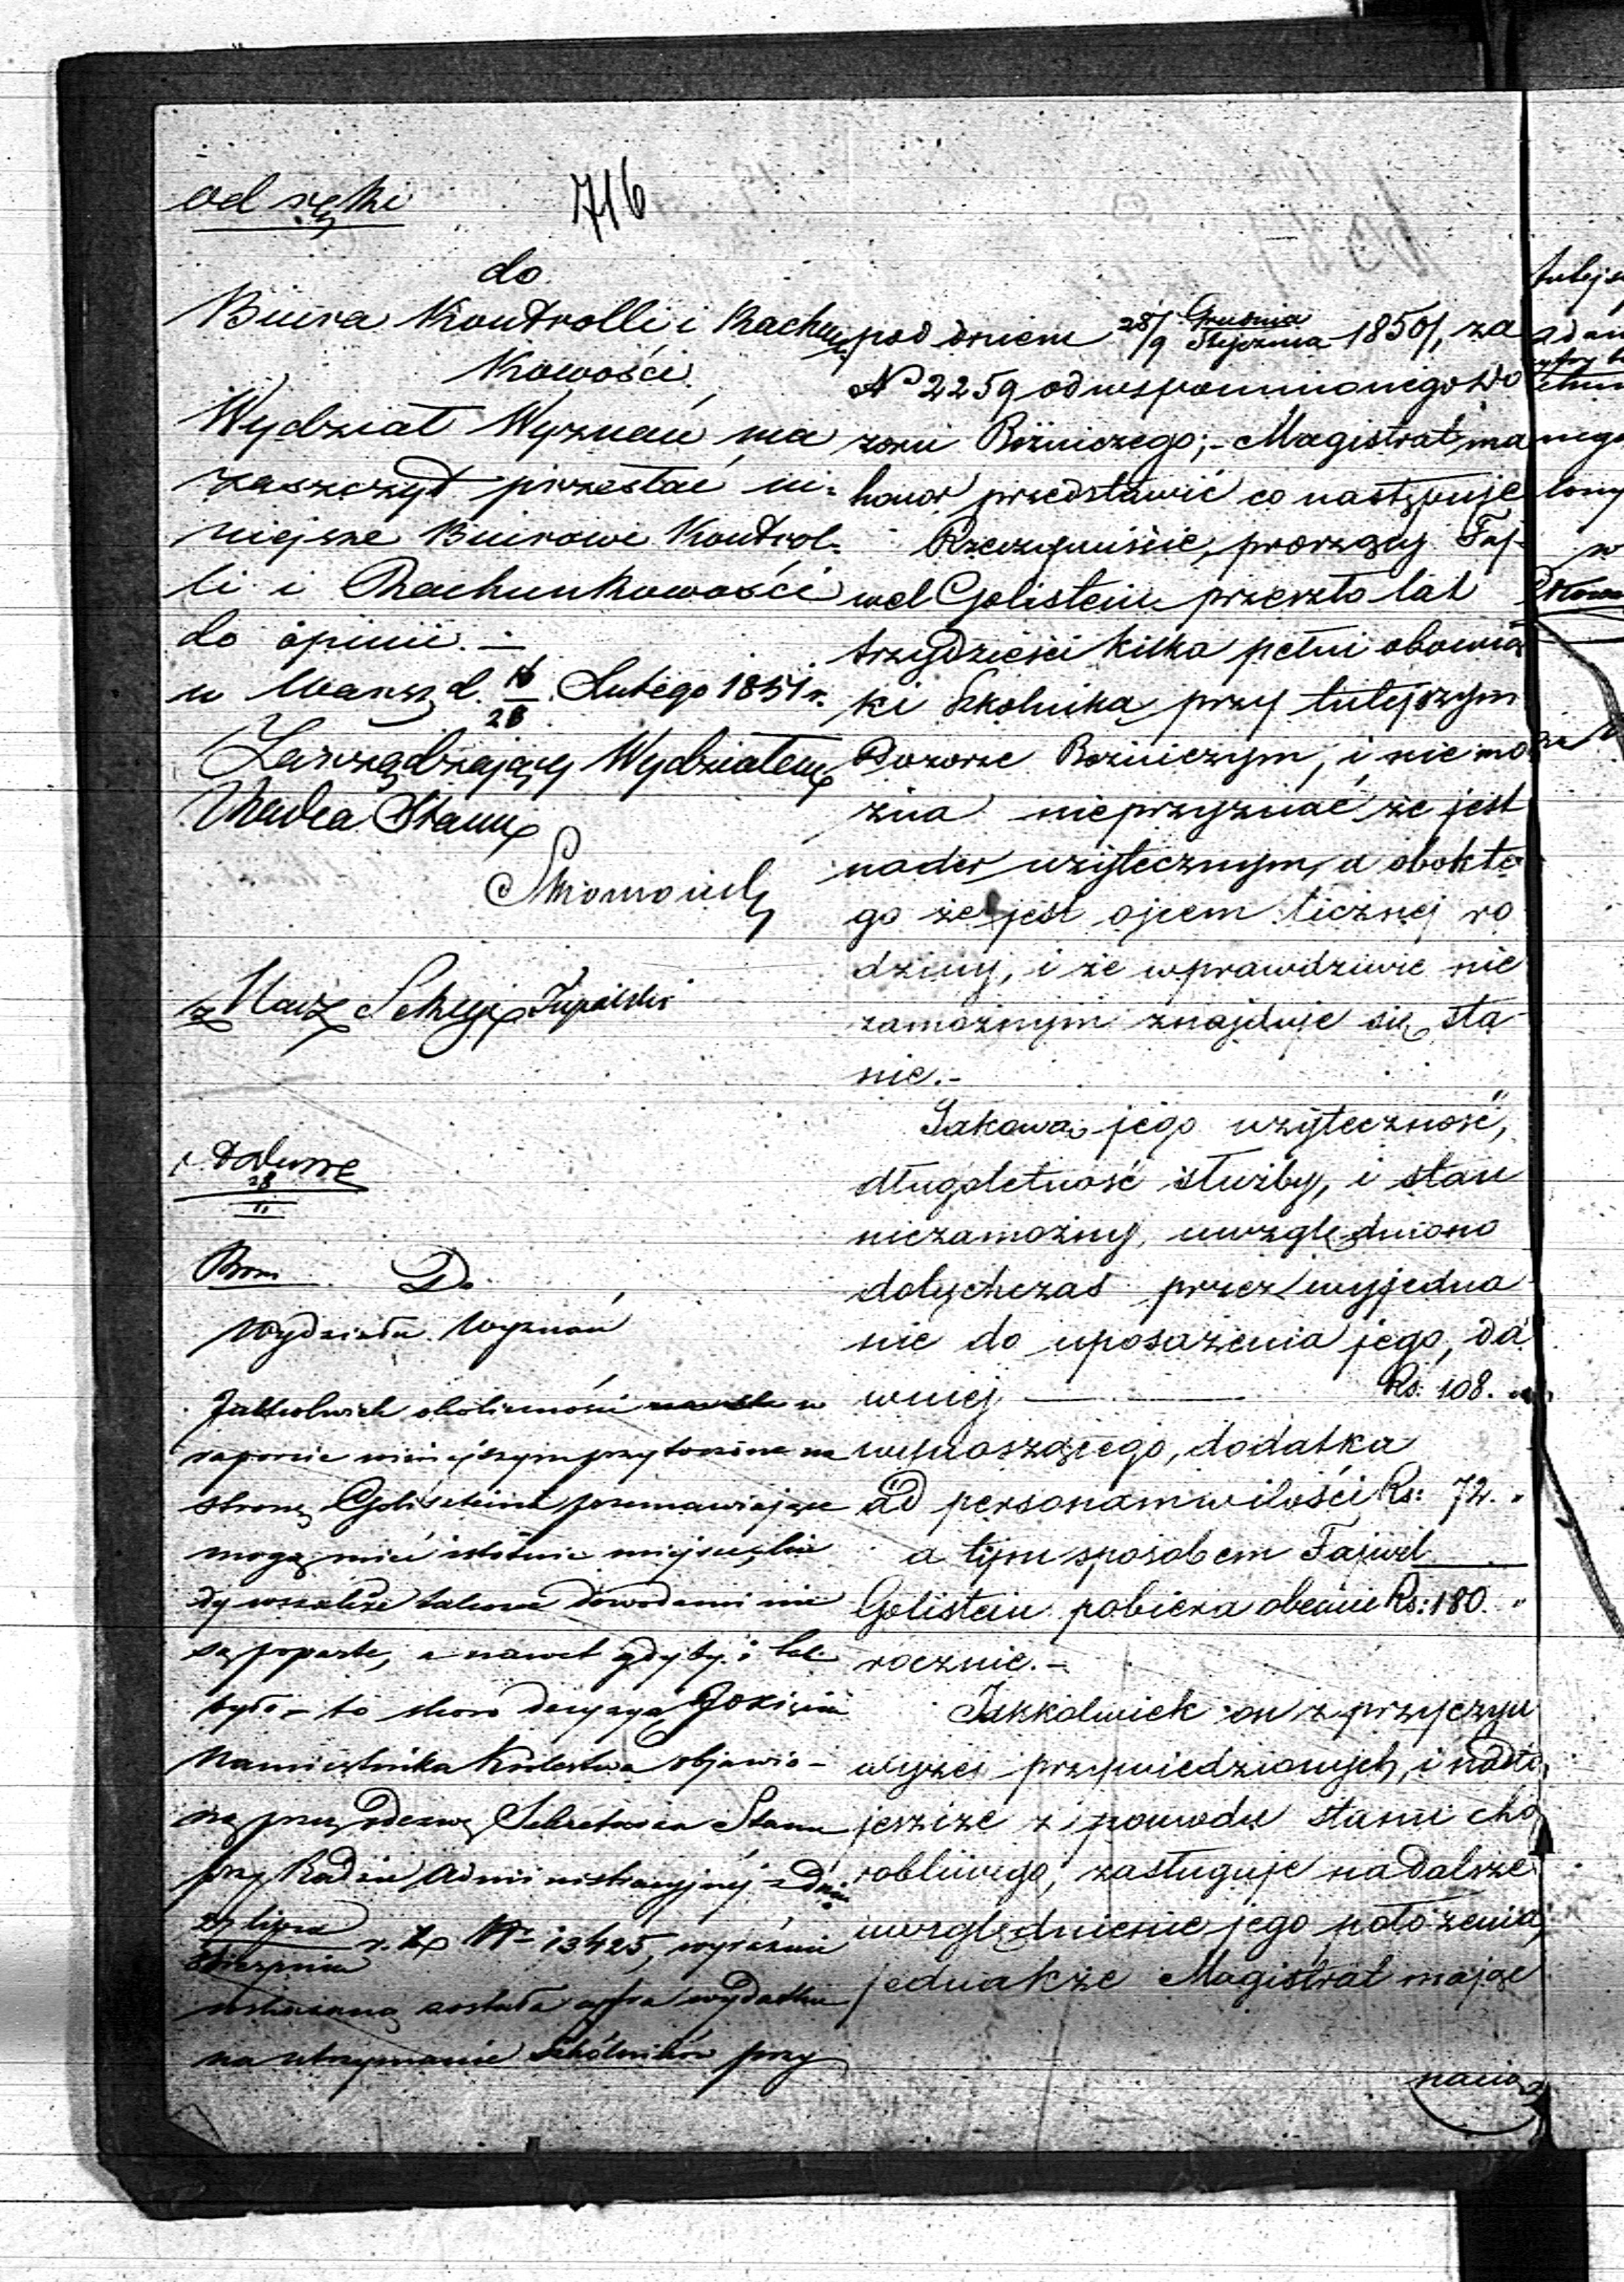 716
od ręki
do
Biura Kontrolli i Rachun
kowości
Wydział Wyznań ma
zaszczyt przesłać ni-
niejsze Biurowi Kontrol-
li i Rachunkowości
do opinii. —
w Warsz. d. 16/28 Lutego 1851 r.
Zarządzający Wydziałem
Radca Stanu
Nacz. Sekcyi
28/II
Do
Wydziału Wyznań
Jakkolwiek okoliczności w
raporcie niniejszym przytoczone na
stronę Goliszteina przemawiające
mogą mieć istotnie miejsce, kie
dy wszakże takowe dowodami nie
są poparte, a nawet gdyby i tak
było – to skoro decyzyą Xięcia
Namiestnika Królestwa objawio-
ną przez odezwę Sekretarza Stanu
przy Radzie Administracyjnej z dnia
27 lipca
8 sierpnia r. z. Nr 13425, wyraźnie
wskazaną została cyfra wydatku
na utrzymanie szkólników przy
pod dniem 28/9 Grudnia/Stycznia 1850/1, za
No 2259 od wspomnionego Do
zoru Bożniczego; – Magistrat ma
honor przedstawić co następuje
Rzeczywiście, prorządy Faj-
wel Golistein przeszło lat
trzydzieści kilka pełni obowiąz
ki Szkolnika przy tutejszym
Dozorze Bożniczym, i nie mo
żna nieprzyznać że jest
nader użytecznym, a obok te
go że jest ojcem licznej ro
dziny, i że wprawdziwie nie
zamożnym znajduje się sta
nie. –
Takowa jego użyteczność,
długoletność służby, i stan
niezamożny, uwzględniono
dotychczas przez wyjedna
nie do uposażenia jego, da
wniej — Rs: 108. „
wynoszącego, dodatku
ad personam w ilości Rs: 72. „
a tym sposobem Fajwel
Golistein pobiera obecnie Rs: 180. „
rocznie. –
Jakkolwiek on z przyczyn
wyżej przywiedzionych, i nadto
jeszcze z powodu stanu cho
robliwego, zasługuje na dalsze
uwzględnienie jego położenia,
jednakże Magistrat mając